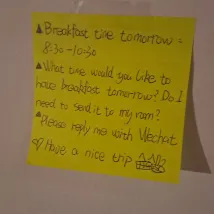 ▲Breakfast time tomorrow =
8:30-10:30
▲What time would you like to
have breakfast tomorrow? Do I
need to send it to my room?
▲Please reply me with Wechat
♡ Have a nice trip